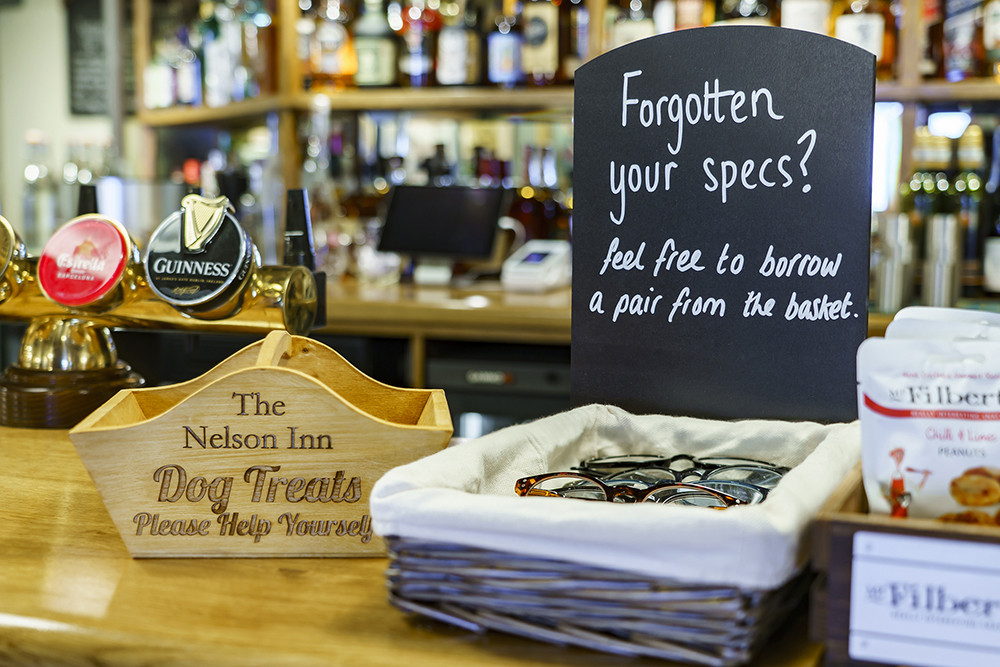 Forgotten
your specs?
feel free to borrow
a pair from the basket.
Estrella
BARCELONA
GUINNESS
The
Nelson Inn
Dog Treats
Please Help Yourself
Mr Filbert
Chilli & Lime
PEANUTS
Filbert